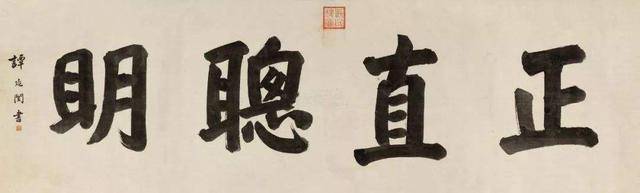 正直聰眀
譚延闓書